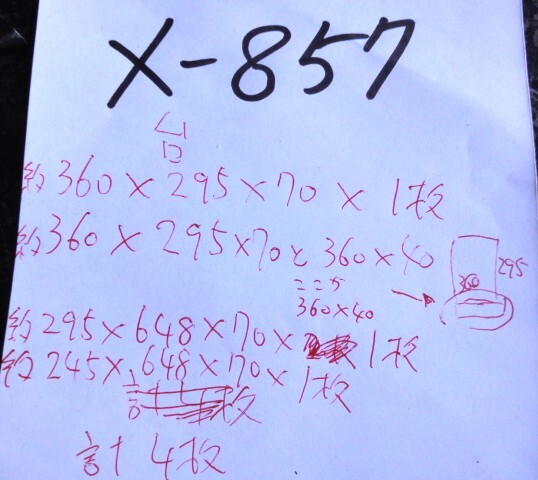 X-857
台
約360×295×70×1枚
約360×295×70と360×40
ここが
360×40
360
295
約295×648×70×1枚
約245×648×70×1枚
計4枚